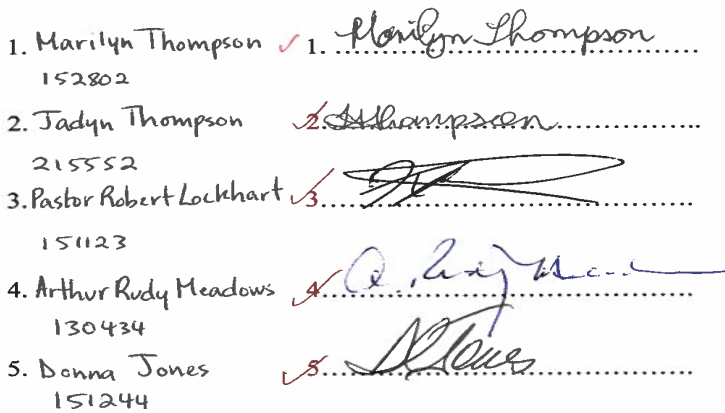 1. Marilyn Thompson ✓ 1. Marilyn Thompson
152802
2. Jadyn Thompson ✓ 2. Thompson
215552
3. Pastor Robert Lockhart ✓ 3.
151123
4. Arthur Rudy Meadows ✓ 4. A. Rudy
130434
5. Donna Jones ✓ 5. D Jones
151244